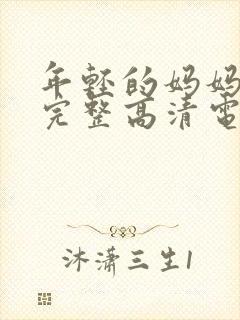 年轻的妈妈
完整高清電
沐潇三生1